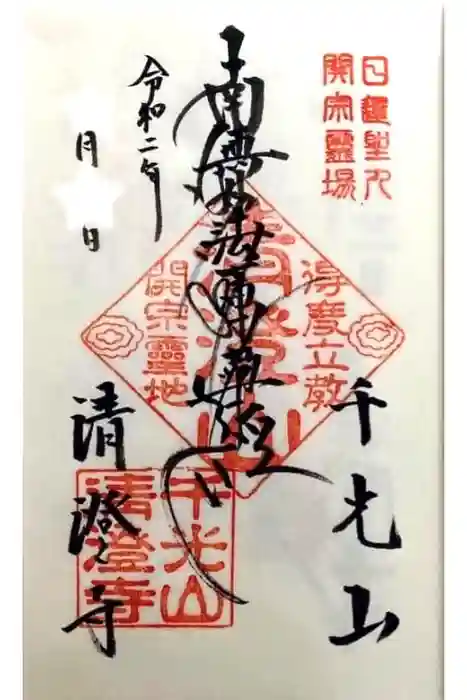 日蓮聖人
開宗靈場
千光山
得度立教
南無妙法蓮華経
清澄山
開宗靈地
千光山
清澄寺
令和二年
月 日
清澄寺